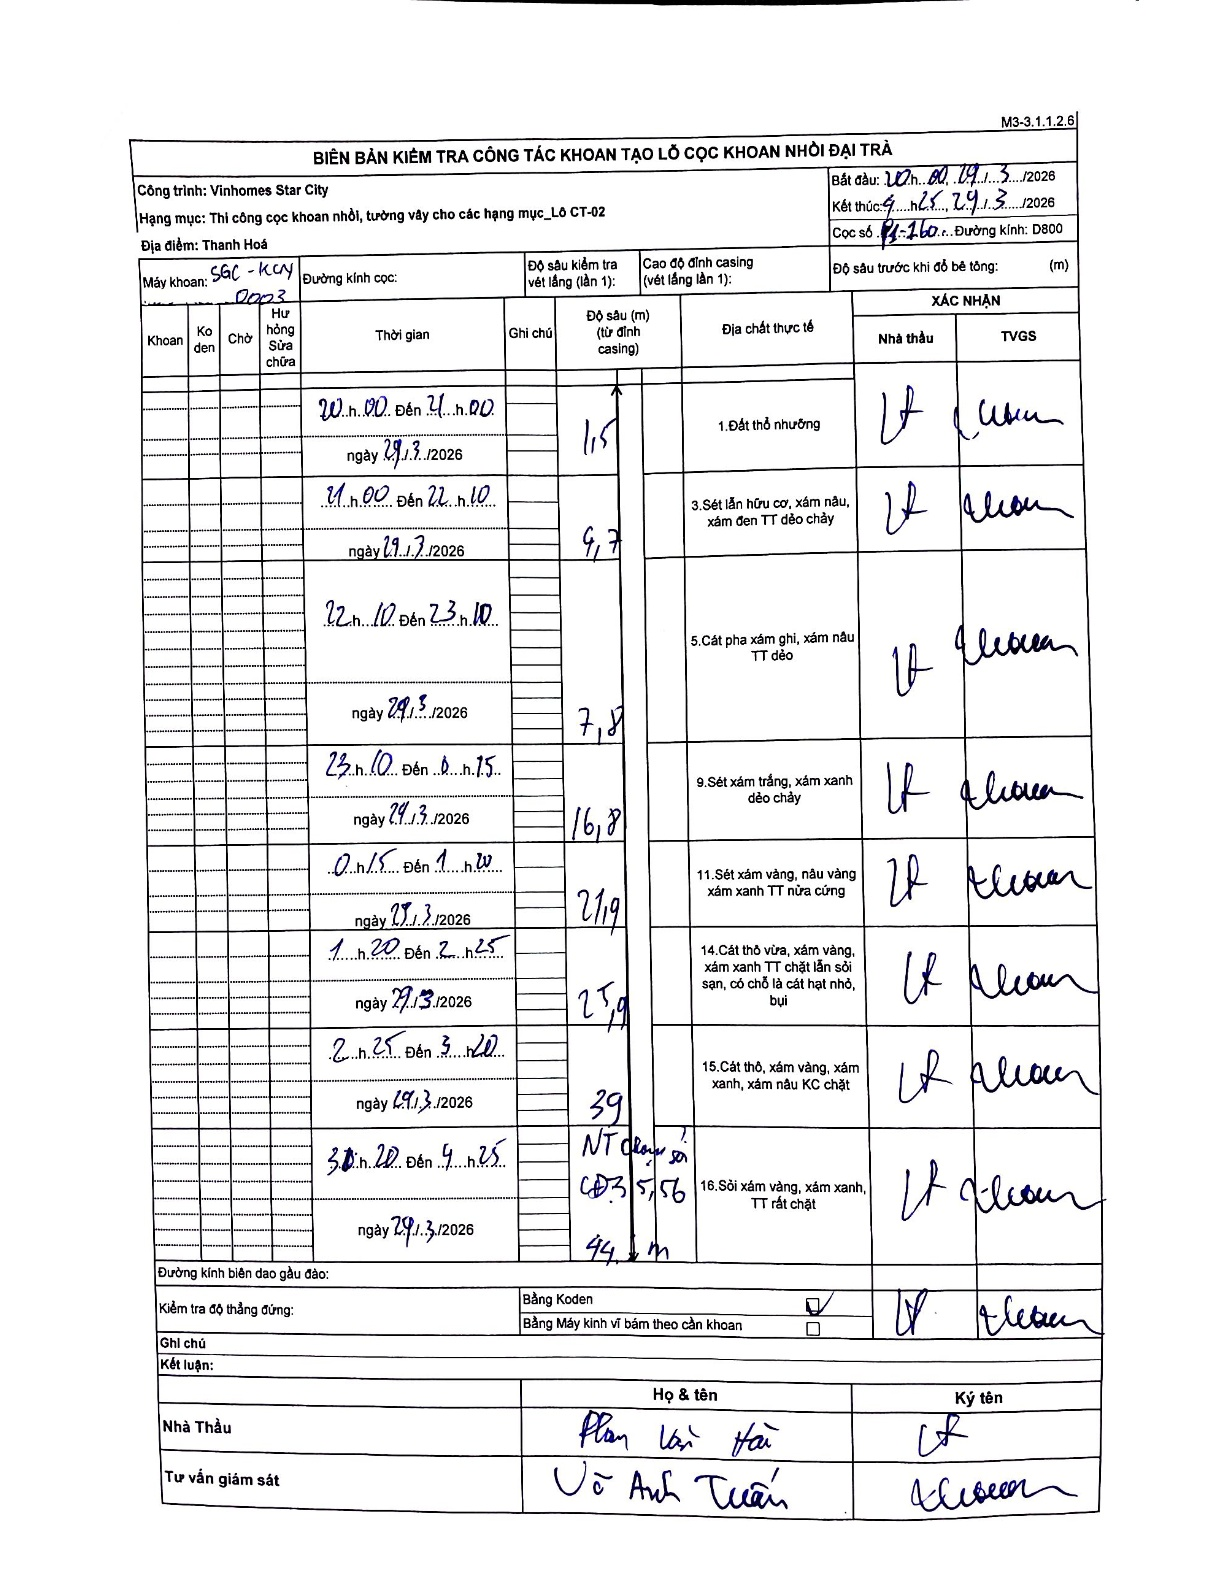 M3-3.1.1.2.6
BIÊN BẢN KIỂM TRA CÔNG TÁC KHOAN TẠO LỖ CỌC KHOAN NHỒI ĐẠI TRÀ
Công trình: Vinhomes Star City
Hạng mục: Thi công cọc khoan nhồi, tường vây cho các hạng mục_Lô CT-02
Địa điểm: Thanh Hoá
Bắt đầu: 20h 00, 29/3/2026
Kết thúc: 4h25, 29/3/2026
Cọc số P1-160 Đường kính: D800
Máy khoan: SGC - KCN 0003
Đường kính cọc:
Độ sâu kiểm tra vét lắng (lần 1):
Cao độ đỉnh casing (vét lắng lần 1):
Độ sâu trước khi đổ bê tông: (m)
Khoan Ko den Chờ Hư hỏng Sửa chữa Thời gian Ghi chú Độ sâu (m) (từ đỉnh casing) Địa chất thực tế XÁC NHẬN
Nhà thầu TVGS
20h00 Đến 21h00
ngày 29/3/2026
1,5
1.Đất thổ nhưỡng
21h00 Đến 22h10
ngày 29/3/2026
4,7
3.Sét lẫn hữu cơ, xám nâu,
xám đen TT dẻo chảy
22h10 Đến 23h10
ngày 29/3/2026
7,8
5.Cát pha xám ghi, xám nâu
TT dẻo
23h10 Đến 0h15
ngày 29/3/2026
16,8
9.Sét xám trắng, xám xanh
dẻo chảy
0h15 Đến 1h20
ngày 29/3/2026
21,9
11.Sét xám vàng, nâu vàng
xám xanh TT nửa cứng
1h20 Đến 2h25
ngày 29/3/2026
25,9
14.Cát thô vừa, xám vàng,
xám xanh TT chặt lẫn sỏi
sạn, có chỗ là cát hạt nhỏ,
bụi
2h25 Đến 3h20
ngày 29/3/2026
39
15.Cát thô, xám vàng, xám
xanh, xám nâu KC chặt
3h20 Đến 4h25
ngày 29/3/2026
NT chạm sỏi
CĐ35,56
44 m
16.Sỏi xám vàng, xám xanh,
TT rất chặt
Đường kính biên dao gầu đào:
Kiểm tra độ thẳng đứng:
Bằng Koden
Bằng Máy kinh vĩ bám theo cần khoan
Ghi chú
Kết luận:
Họ & tên Ký tên
Nhà Thầu Phan Văn Hải
Tư vấn giám sát Võ Anh Tuấn